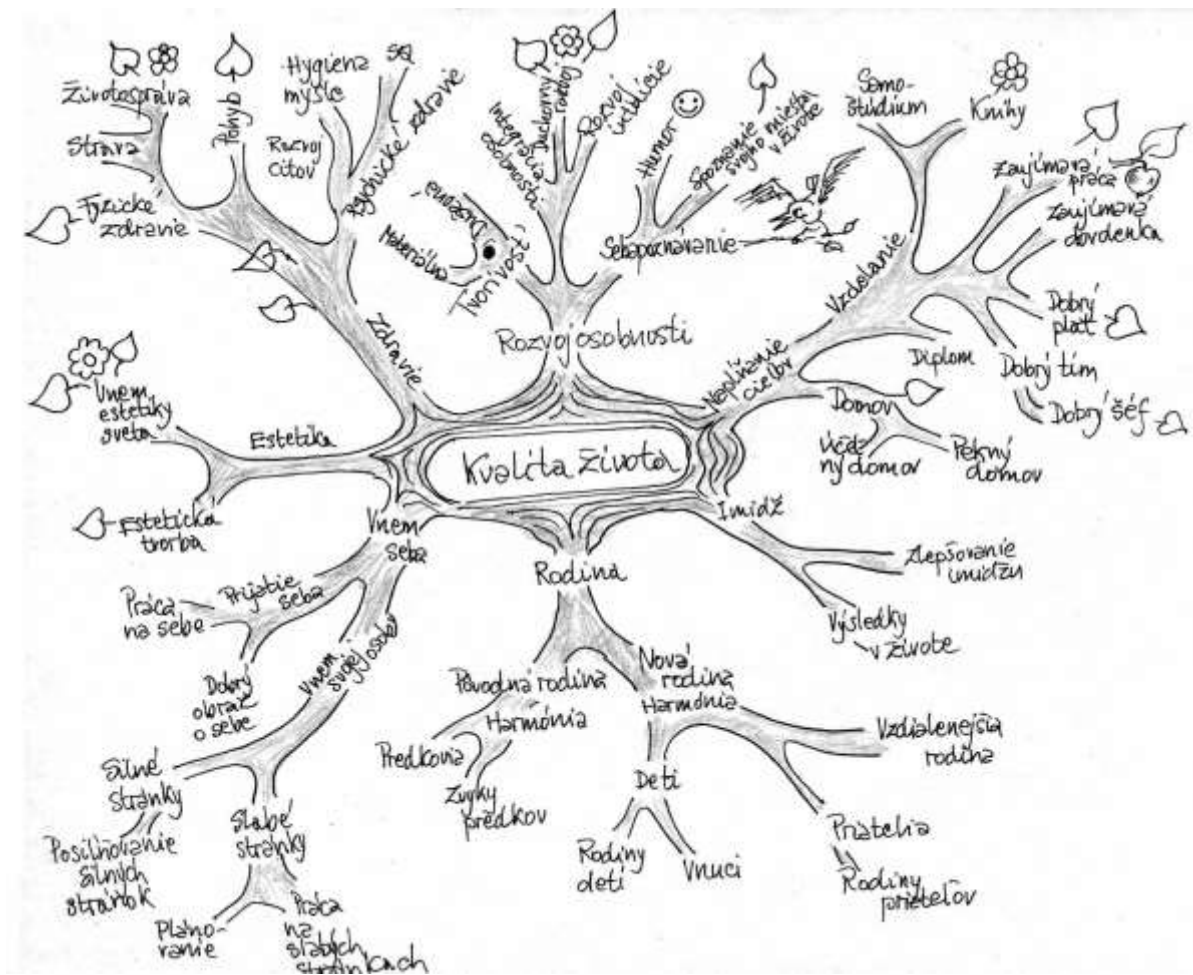 Kvalita života
Zdravie
Fyzické
zdravie
Strava
Životospráva
Pohyb
Psychické
zdravie
Rozvoj
citov
Hygiena
mysle
Rozvoj osobnosti
Tvorivosť
Materiálna
Duševná
Integrácia
osobnosti
Duchovný
rozvoj
Rozvoj
intuície
Sebapoznávanie
Humor
Spoznanie
svojho miesta
v živote
Napĺňanie
cieľov
Vzdelanie
Samo-
štúdium
Knihy
Zaujímavá
práca
Zaujímavá
dovolenka
Dobrý
plat
Dobrý tím
Dobrý šéf
Diplom
Domov
ný domov
Pekný
domov
Imidž
Zlepšovanie
imidžu
Výsledky
v živote
Rodina
Pôvodná rodina
Harmónia
Predkovia
Zvyky
predkov
Nová
rodina
Harmónia
Deti
Rodiny
detí
Vnuci
Vzdialenejšia
rodina
Priatelia
Rodiny
priateľov
Vnem
seba
Prijatie
seba
Práca
na sebe
Dobrý
obraz
o sebe
Vnem
svojej osoby
Silné
stránky
Posilňovanie
silných
stránok
Slabé
stránky
Pláno-
vanie
Práca
na
slabých
stránkach
Estetika
Vnem
estetiky
sveta
Estetická
tvorba